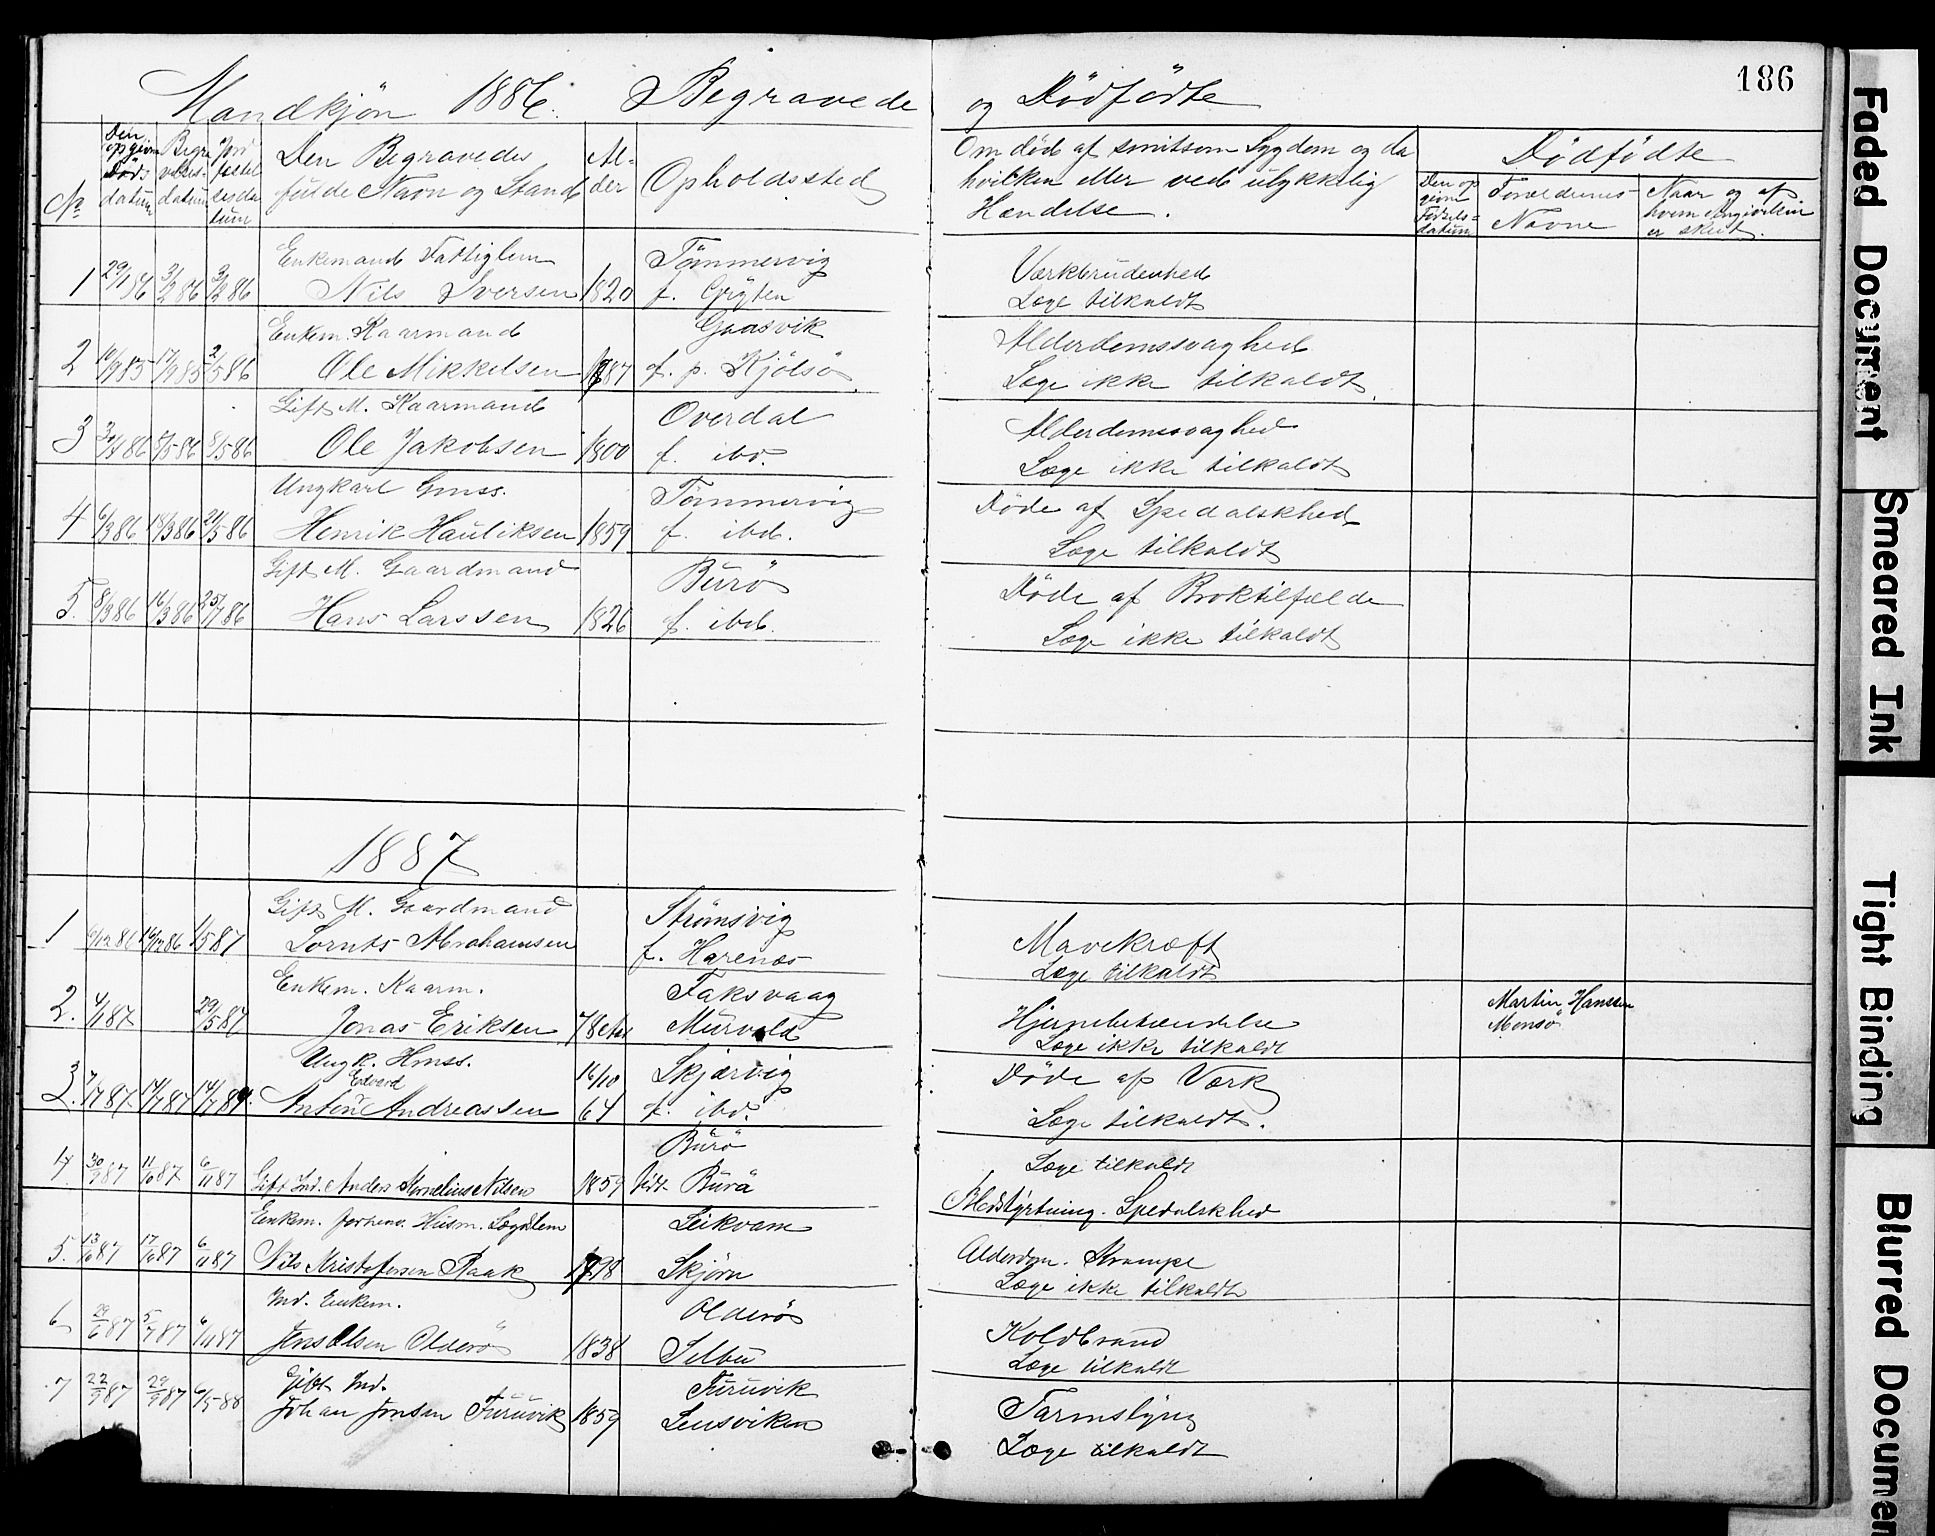 186
Mandkjøn 1886. Begravede og Dödfödte
No
Den opgivne Døds datum
Begravelses datum
Jordfæstelsesdatum
Den Begravedes fulde Navn og Stand
Alder
Opholdssted
Om död af smitsom Sygdom og da
hvilken eller ved ulykkelig
Hændelse.
Dödfödte
Den opgivne Födselsdatum
Forældrenes Navne
Naar og af hvem Angivelsen er skeet.
Enkemand Fattiglem Tömmervig Værkbrudenhed
1 29/1 86 3/2 86 3/2 86 Nils Iversen 1820 f. Gryten Læge tilkaldt
Enkem. Kaarmand Gaasvik Alderdomssvaghed
2 10/9 85 17/9 85 2/5 86 Ole Mikkelsen 1787 f. p. Kjölsö Læge ikke tilkaldt.
Gift M. Kaarmand Overdal Alderdomssvaghed
3 30/4 86 8/5 86 8/5 86 Ole Jakobsen 1800 f. ibd. Læge ikke tilkaldt
Ungkarl Gmss. Tömmervig Döde af Spedalskhed
4 6/3 86 14/3 86 21/5 86 Henrik Hauliksen 1859 f. ibd. Læge tilkaldt
Gift M. Gaardmand Burö Döde af Broktilfælde
5. 8/3 86 16/3 86 25/7 86 Hans Larssen 1826 f. ibd. Læge ikke tilkaldt
1887
Gift M. Gaardmand Strömsvig Mavekræft
1 6/12 86 16/12 86 1/5 87 Lornts Abrahamsen f. Harenæs Læge tilkaldt
Enkem. Kaarm. Taksvaag Hjernebetændelse Martin Hanssen
2. 4/1 87 29/5 87 Jonas Eriksen 78 Murvold Læge ikke tilkaldt Monsö
Ungk. Hmss. 16/10 Skjærvig Döde af Værk
Edvard
3. 7/7 87 14/7 87 14/7 87. Anton Andreassen 64 f. ibd. Læge tilkaldt.
Burö Læge tilkaldt
4. 30/9 87 11/10 87 6/11 87 Gift Ind. Anders Kornelius Nilsen 1859 födt Burö Blodstyrtning. Spedalskhed
Enkem. Husm. Lægdslem Leikvam Alderdom. Krampe
5. 13/10 87 17/10 87 6/11 87 Nils Kristofersen Raak 1798 Skjörn Læge ikke tilkaldt
Ind. Enkem. Olderö Koldbrand
6 29/6 87 5/7 87 6/11 87 Jens Olsen Olderö 1838 Selbu Læge tilkaldt
Gift Ind. Furuvik Tarmslyng
7 22/9 87 29/9 87 6/5 88 Johan Jonsen Furuvik 1859 Lensviken Læge tilkaldt
Faded Document
Smeared Ink
Tight Binding
Blurred Documen